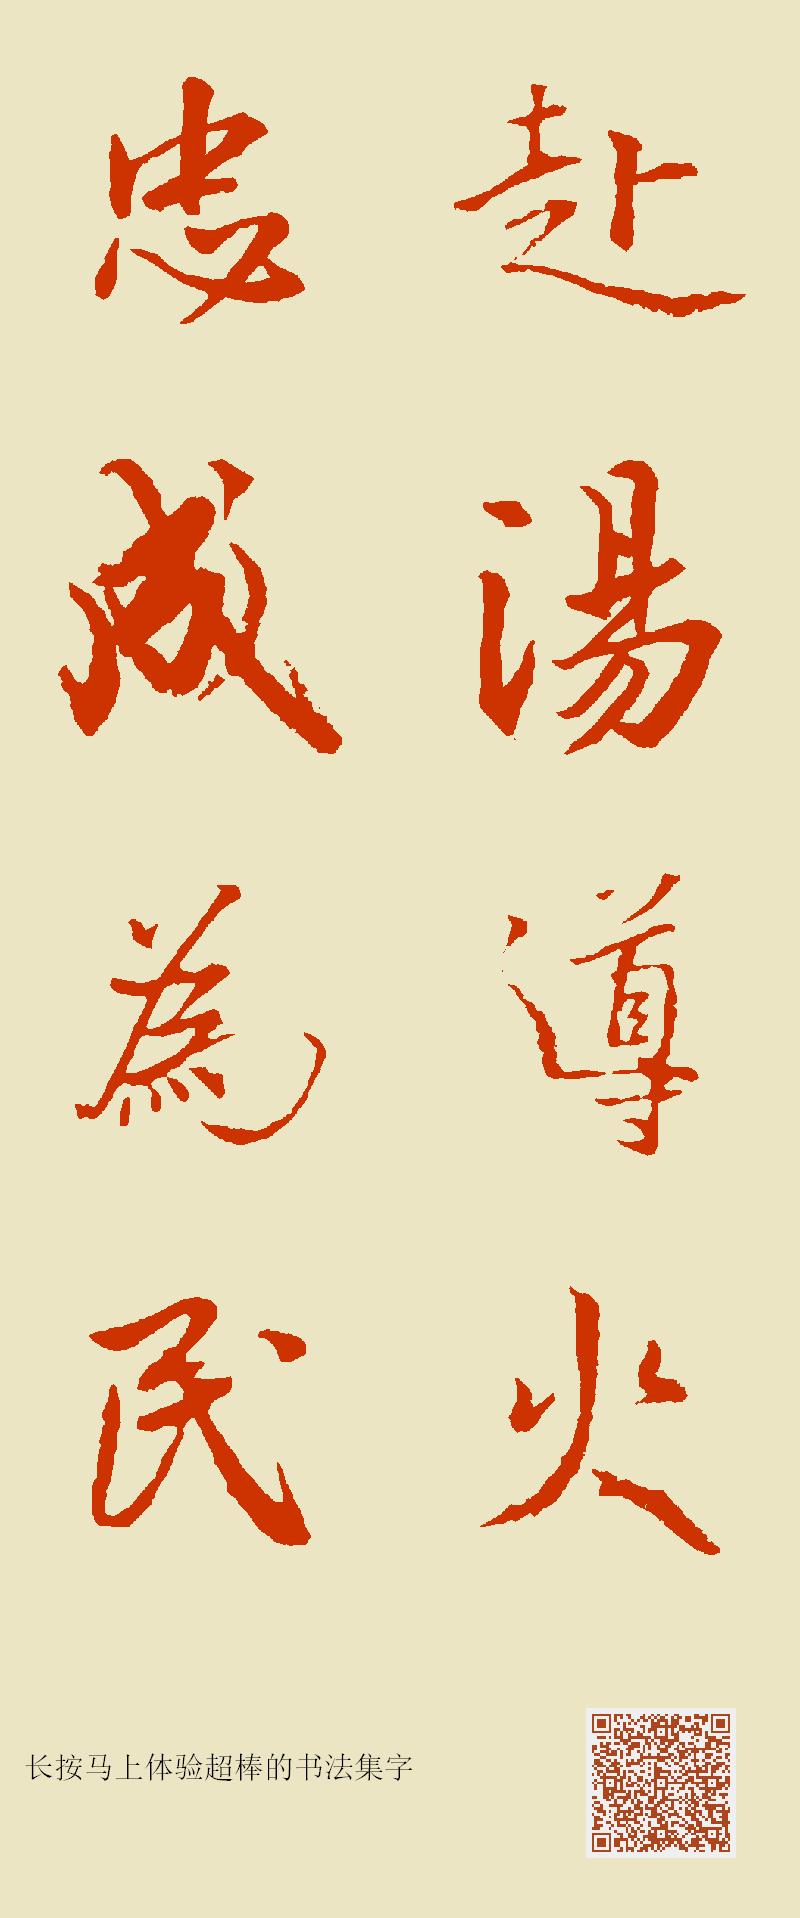 赴湯導火
忠成為民
长按马上体验超棒的书法集字